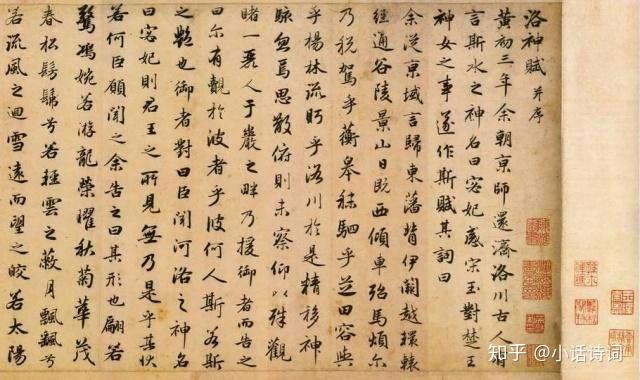 洛神賦 并序
黄初三年余朝京師還濟洛川古人有
言斯水之神名曰宓妃感宋玉對楚王
神女之事遂作斯賦其詞曰
余從京域言歸東藩背伊闕越轘轅
經通谷陵景山日既西傾車殆馬煩尔
乃税駕乎蘅皋秣駟乎芝田容與
乎楊林流眄乎洛川於是精移神
駭忽焉思散俯則未察仰以殊觀
睹一麗人于巖之畔乃援御者而告之
曰尔有覿於彼者乎彼何人斯若斯
之艷也御者對曰臣聞河洛之神名
曰宓妃則君王之所見無乃是乎其狀
若何臣願聞之余告之曰其形也翩若
驚鴻婉若游龍榮曜秋菊華茂
春松髣髴兮若輕雲之蔽月飄飄兮
若流風之迴雪遠而望之皎若太陽
知乎 @小话诗词